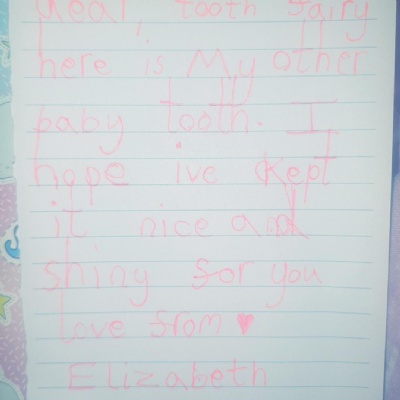 dear, tooth fairy
here is My other
baby tooth. I
hope ive kept
it nice and
shiny for you
love from ♥
Elizabeth